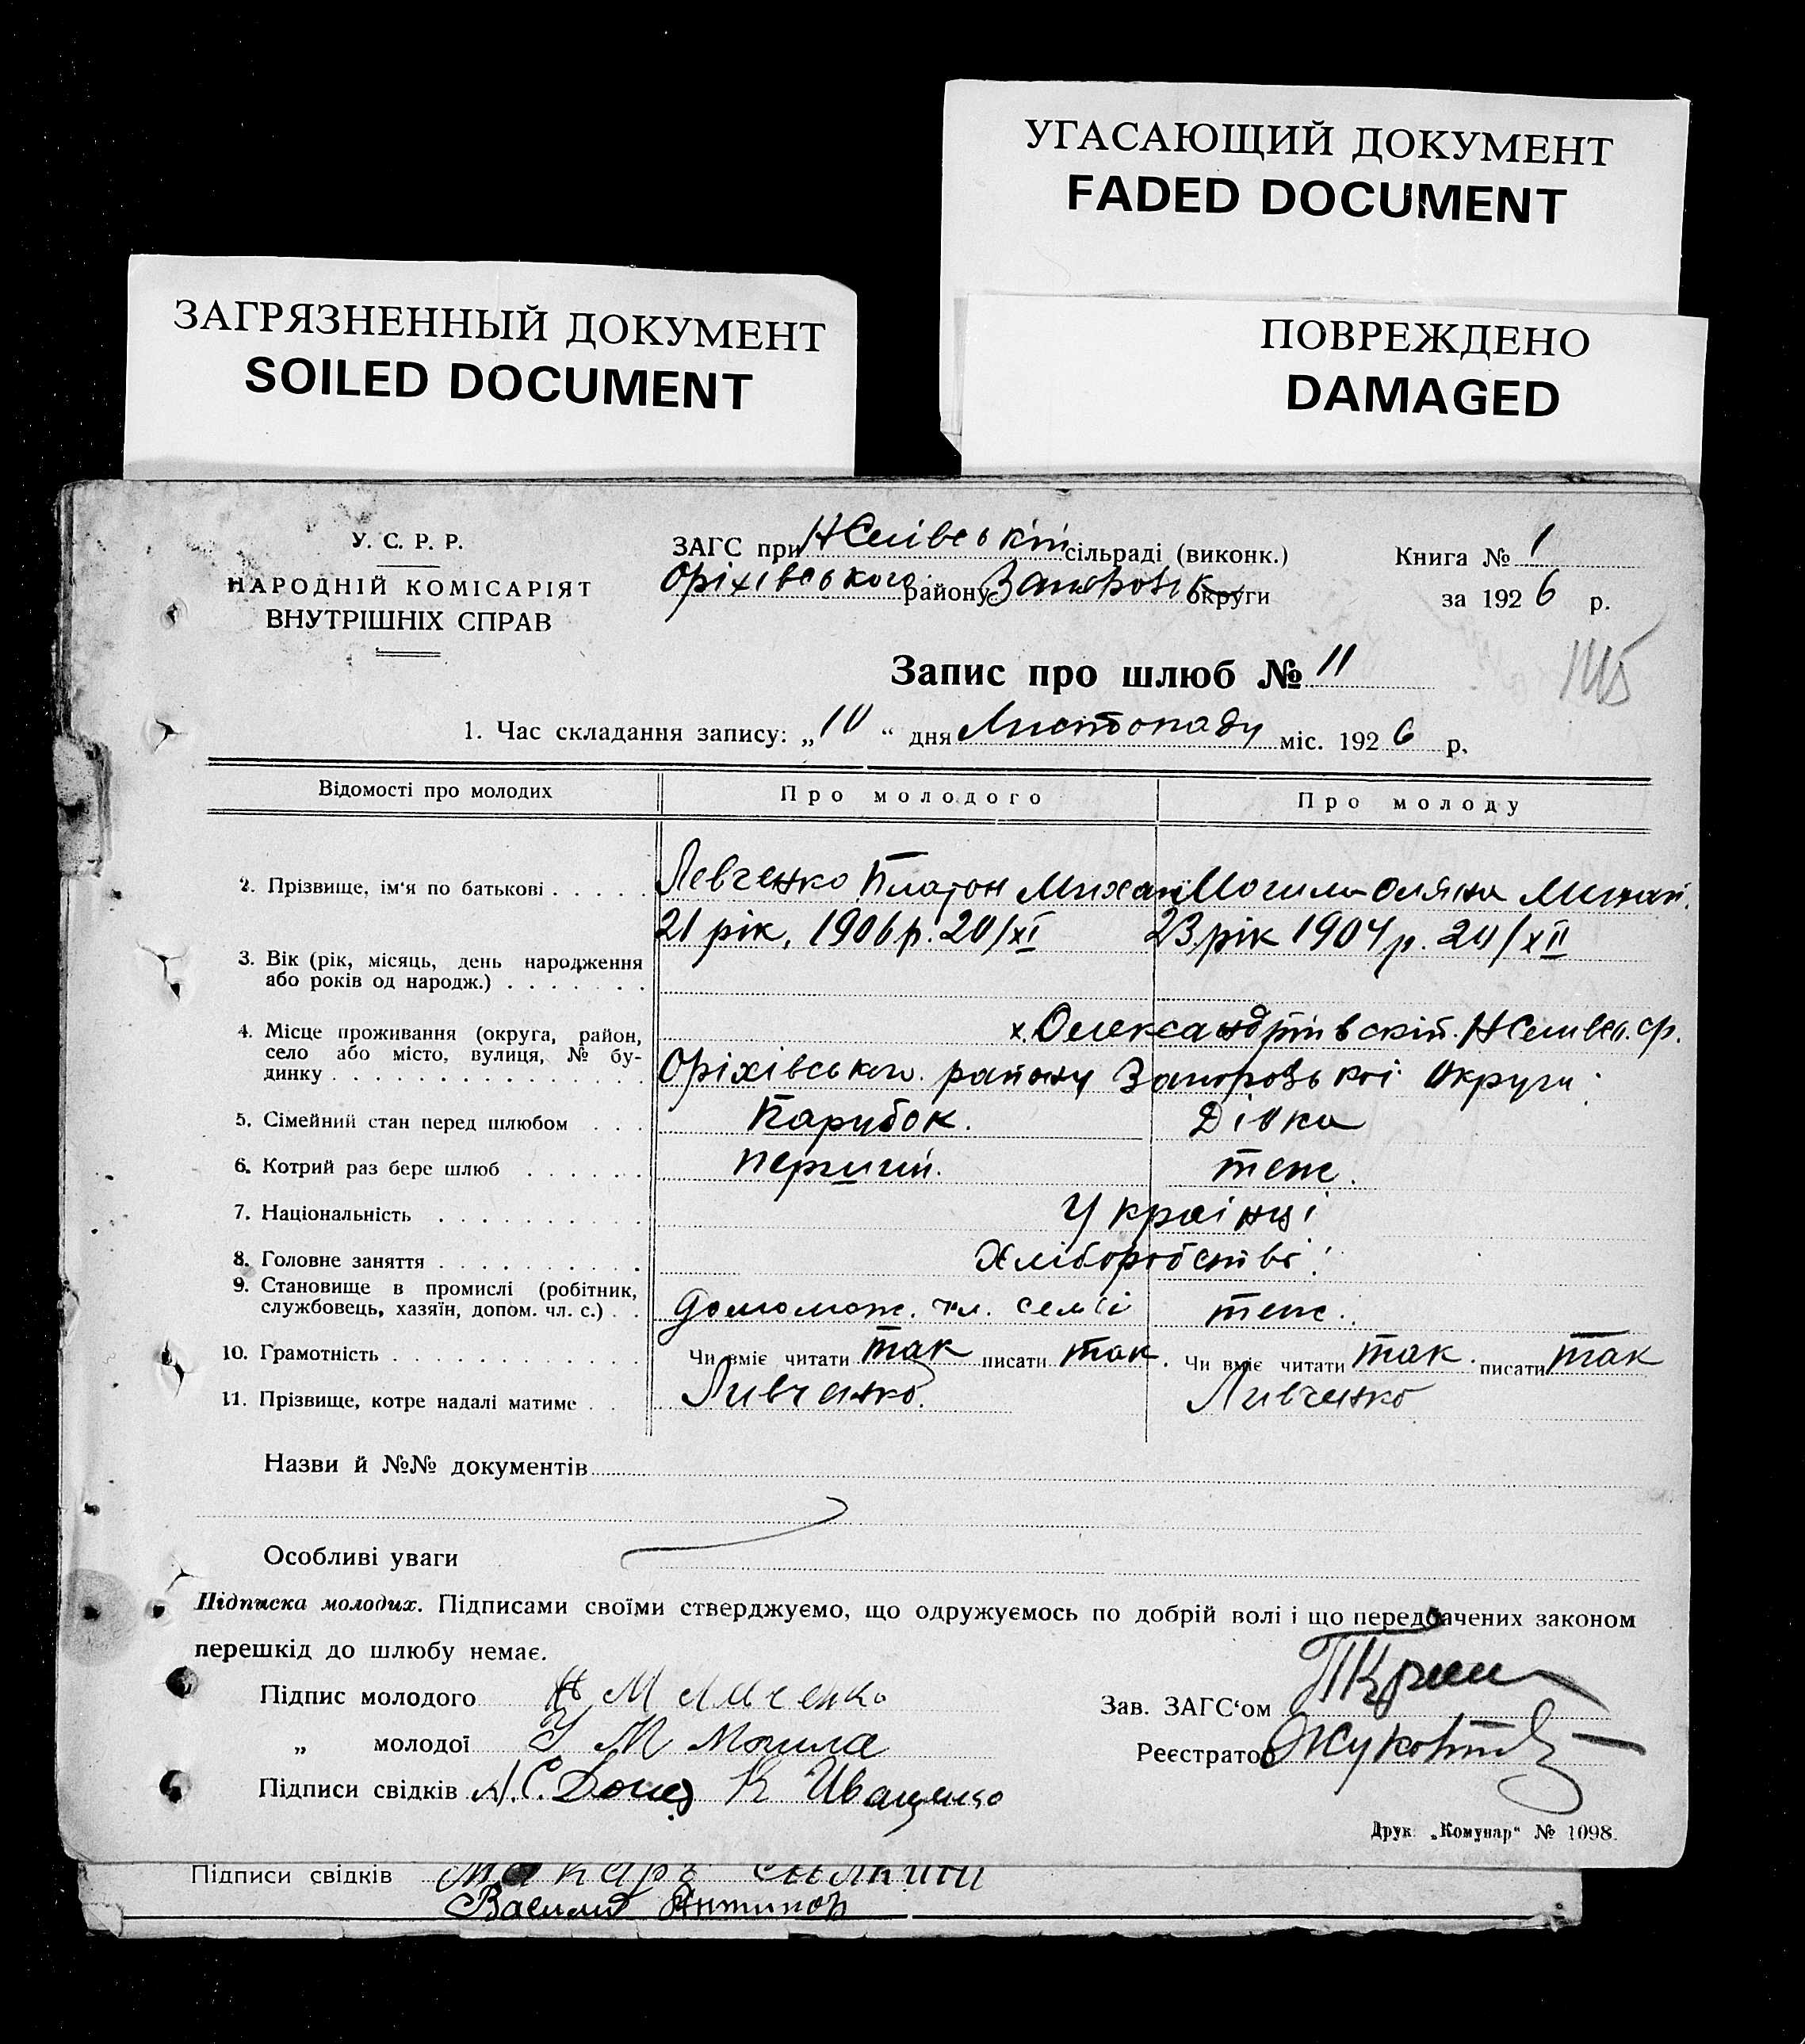 УГАСАЮЩИЙ ДОКУМЕНТ
FADED DOCUMENT
ЗАГРЯЗНЕННЫЙ ДОКУМЕНТ
SOILED DOCUMENT
ПОВРЕЖДЕНО
DAMAGED
У. С. Р. Р.
НАРОДНІЙ КОМІСАРІЯТ
ВНУТРІШНІХ СПРАВ
ЗАГС при сільраді (виконк.)
Оріхівського району округи
Книга № 1
за 1926 р.
Запис про шлюб № 11
1. Час складання запису: „10“ дня Листопаду міс. 1926 р.
Відомості про молодих Про молодого Про молоду
2. Прізвище, ім'я по батькові Левченко Платон Михай Могила Оляна Минай.
21 рік, 1906 р. 20/XI 23 рік 1904 р. 20/XII
3. Вік (рік, місяць, день народження
або років од народж.)
4. Місце проживання (округа, район,
село або місто, вулиця, № бу-
динку
х. Олександрійвскій.
Оріхівського району Запорозької Округи
5. Сімейний стан перед шлюбом Парубок. Дівка
6. Котрий раз бере шлюб перший. теж.
7. Національність Українці
8. Головне заняття Хліборобство
9. Становище в промислі (робітник,
службовець, хазяїн, допом. чл. с.) допомож. чл. семії теж.
10. Грамотність Чи вміє читати так писати так. Чи вміє читати так. писати так
11. Прізвище, котре надалі матиме Ливченко. Ливченко
Назви й №№ документів
Особливі уваги
Підписка молодих. Підписами своїми стверджуємо, що одружуємось по добрій волі і що передбачених законом
перешкід до шлюбу немає.
Підпис молодого М Левченко
„ молодої У М Могила
Підписи свідків К Иващенко
Зав. ЗАГС'ом
Реєстратор
Друк. „Комунар“ № 1098.
Підписи свідків Макаръ
Василий Антипов